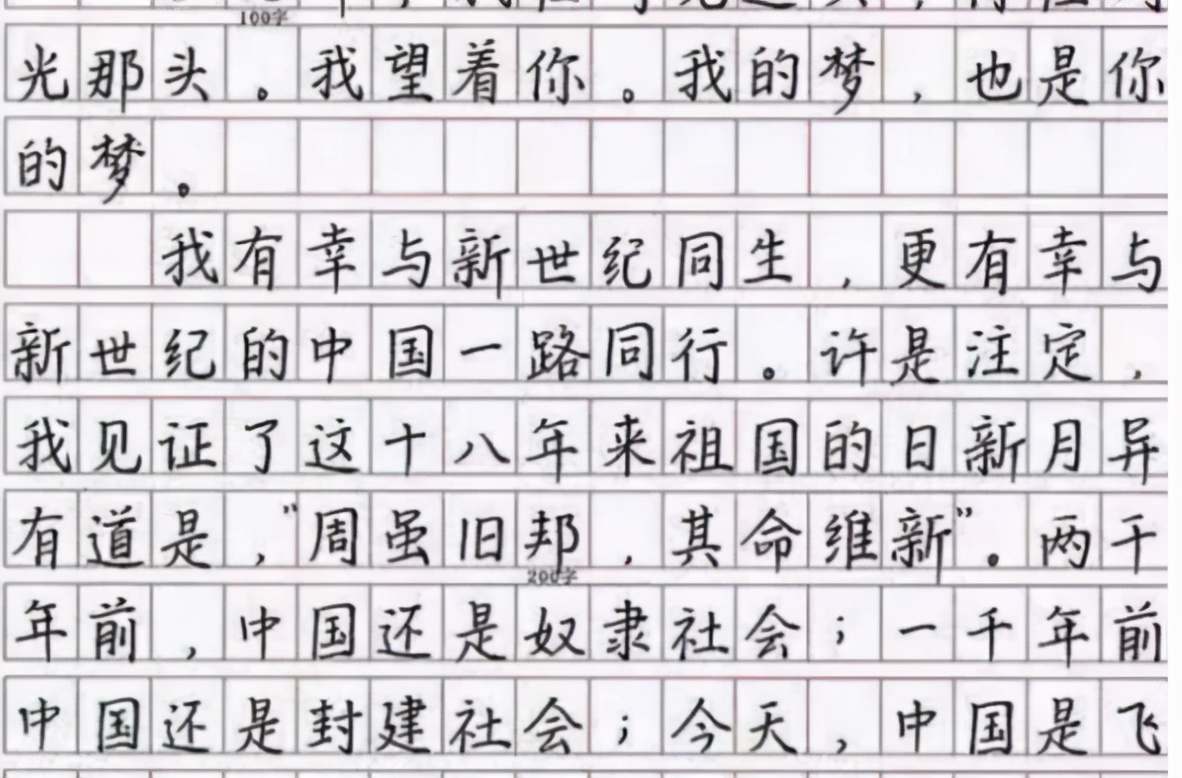 100字
光那头。我望着你。我的梦,也是你
的梦。
我有幸与新世纪同生,更有幸与
新世纪的中国一路同行。许是注定,
我见证了这十八年来祖国的日新月异
有道是,“周虽旧邦,其命维新”。两千
200字
年前,中国还是奴隶社会;一千年前
中国还是封建社会;今天,中国是飞